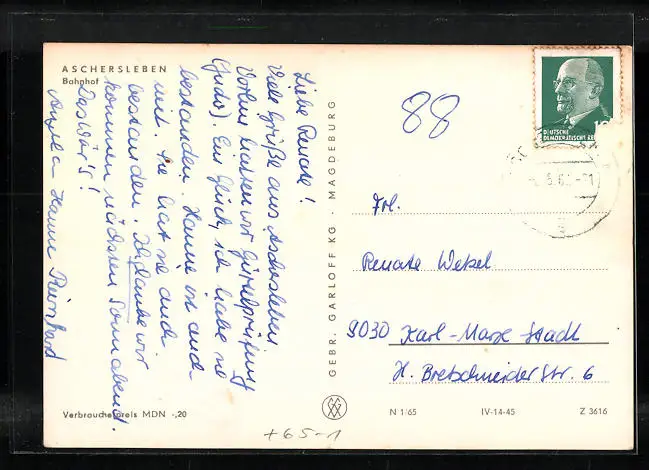 ASCHERSLEBEN
Bahnhof
Liebe Renate!
Viele Grüße aus Aschersleben.
Vorhin hatten wir Gürtelprüfung
(Judo). Ein Glück, ich habe sie
bestanden. Hanne ist auch
mit. Sie hat sie auch
bestanden. Ich denke wir
kommen nächsten Sonnabend.
Das wär's!
Hanne Reinhard
Verbraucherpreis MDN -,20
GEBR. GARLOFF KG · MAGDEBURG
88
DEUTSCHE
DEMOKRATISCHE RE
10
Frl.
Renate Wetzel
9030 Karl-Marx Stadt
H. Bretschneider Str. 6
N 1/65 IV-14-45 Z 3616
+65-1